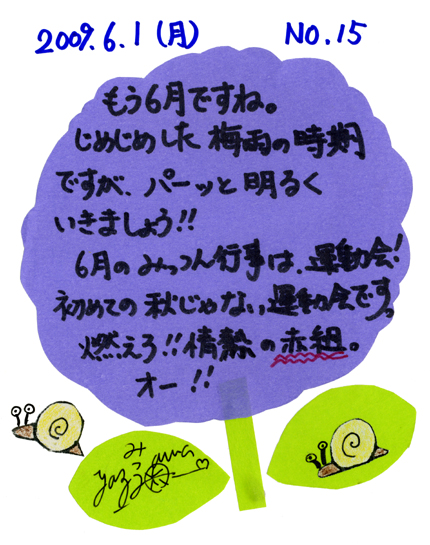 2009.6.1(月) NO.15
もう6月ですね。
じめじめした梅雨の時期
ですが、パーッと明るく
いきましょう!!
6月のみっつん行事は、運動会!
初めての秋じゃない運動会です。
燃えろ!!情熱の赤組。
オー!!
み